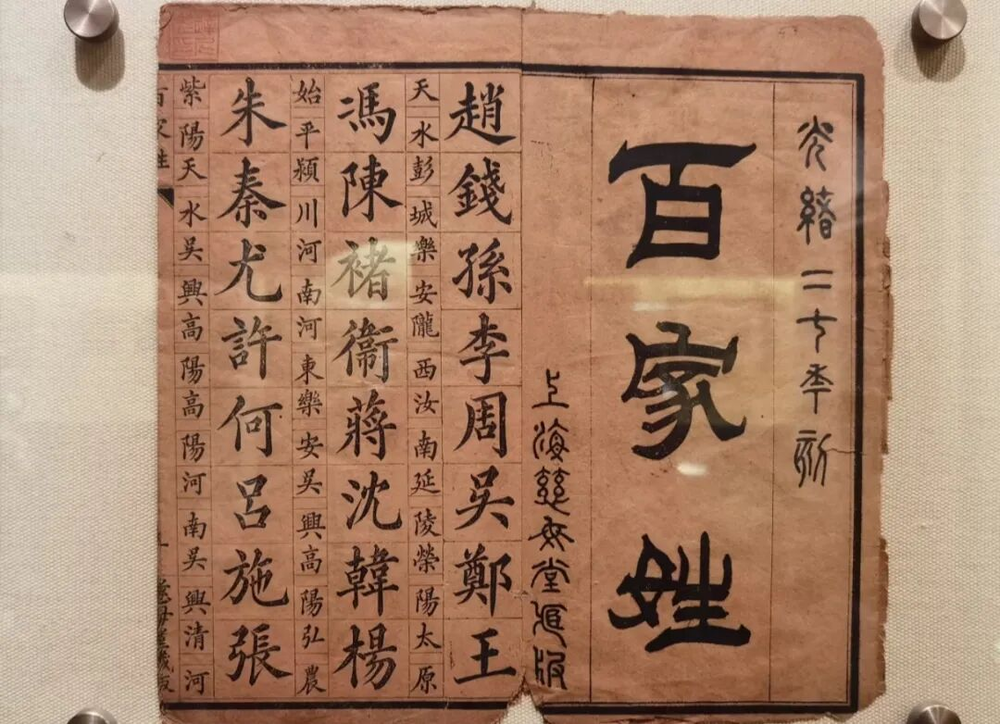 光緒二七年刻
百家姓
上海慈母堂藏版
趙錢孫李周吳鄭王
天水彭城樂安隴西汝南延陵榮陽太原
馮陳褚衞蔣沈韓楊
始平潁川河南河東樂安吳興高陽弘農
朱秦尤許何呂施張
紫陽天水吳興高陽高陽河南吳興清河
百家姓